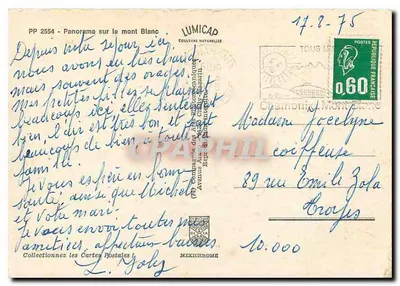 PP 2554 - Panorama sur le mont Blanc
LUMICAP
COULEURS NATURELLES
17-8-75
Depuis votre séjour ici
nous avons eu très chaud
mais souvent des orages.
mes petites filles se plaisent
beaucoup ici elles sentent
bien, l'air est très bon, et fait
beaucoup de bien, à toute la
famille.
Je vous espère en bonne
santé, ainsi que Michel
et votre mari.
Je vous envoie toutes mes
amitiés, affectueux baisers
Collectionnez les Cartes Postales !
MEXICHROME
TOUS LES
Chamonix Mont-Blanc
POSTES
0,60
REPUBLIQUE FRANÇAISE
Madame Jocelyne
coiffeuse
89 rue Emile Zola
Troyes
10.000
CPArama.com